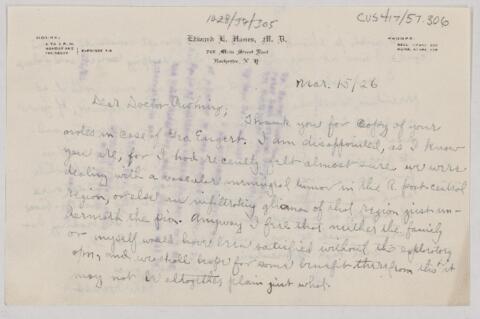 1428/34/305
CUS417/57.306
HOURS:
Edward L. Hanes, M. D.
Main Street East
Rochester, N. Y.
PHONES:
Mar. 15/26
Dear Doctor Cushing;
Thank you for copy of your
notes in case of Ora Eangert. I am disappointed, as I know
you are, for I had recently felt almost sure we were
dealing with a vascular meningeal tumor in the R. post-central
region, or else an infiltrating glioma of that region just un-
derneath the pia. Anyway I feel that neither the family
or myself would have been satisfied without the exploratory
opn, and we shall hope for some benefit therefrom tho' it
may not be altogether plain just what.